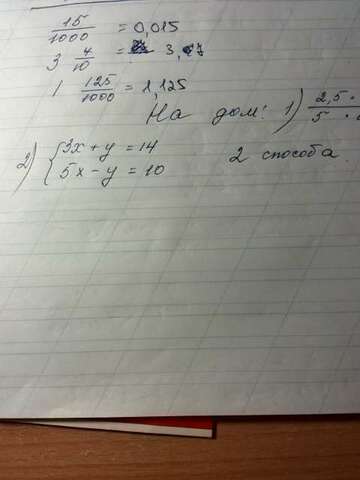 15/1000 = 0,015
3 4/10 = 3,
1 125/1000 = 1,125
На дом: 1) 2,5 ·/5 ·
2) { 3x + y = 14
5x - y = 10
2 способа